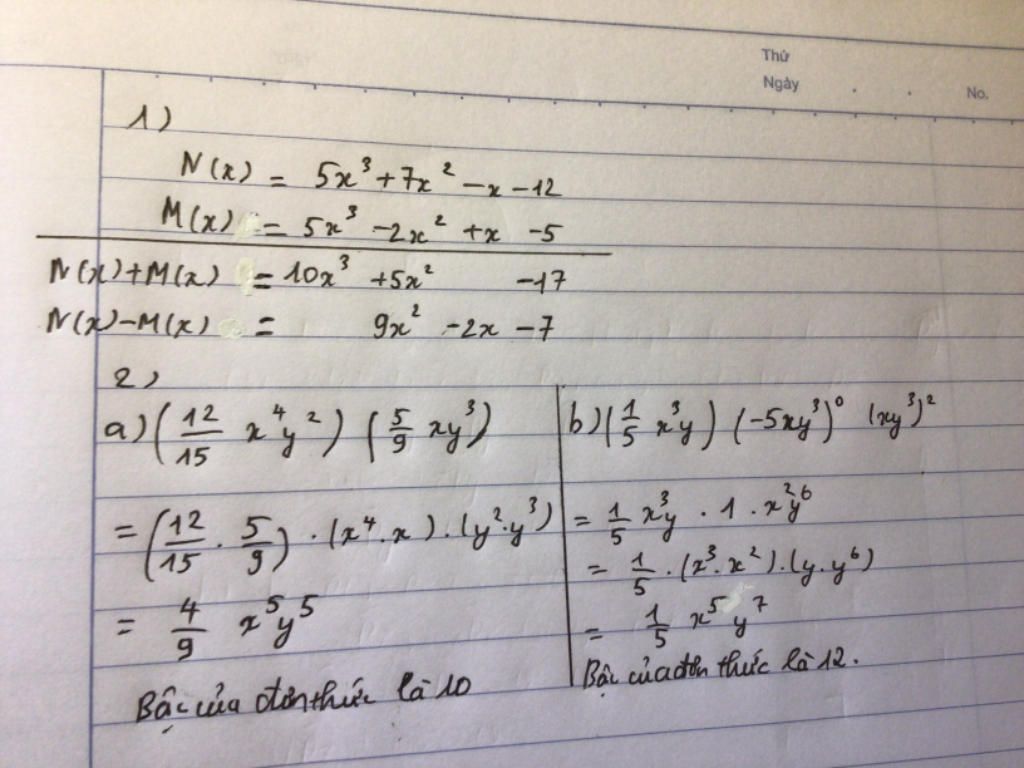 Thứ
Ngày
No.
1)
N(x) = 5x³ + 7x² - x - 12
M(x) = 5x³ - 2x² + x - 5
N(x) + M(x) = 10x³ + 5x² - 17
N(x) - M(x) = 9x² - 2x - 7
2)
a) (12/15 x⁴y²) (5/9 xy³)
= (12/15 . 5/9) . (x⁴.x) . (y².y³)
= 4/9 x⁵y⁵
Bậc của đơn thức là 10
b) (1/5 x³y) (-5xy³)⁰ (xy³)²
= 1/5 x³y . 1 . x²y⁶
= 1/5 . (x³.x²) . (y.y⁶)
= 1/5 x⁵y⁷
Bậc của đơn thức là 12.